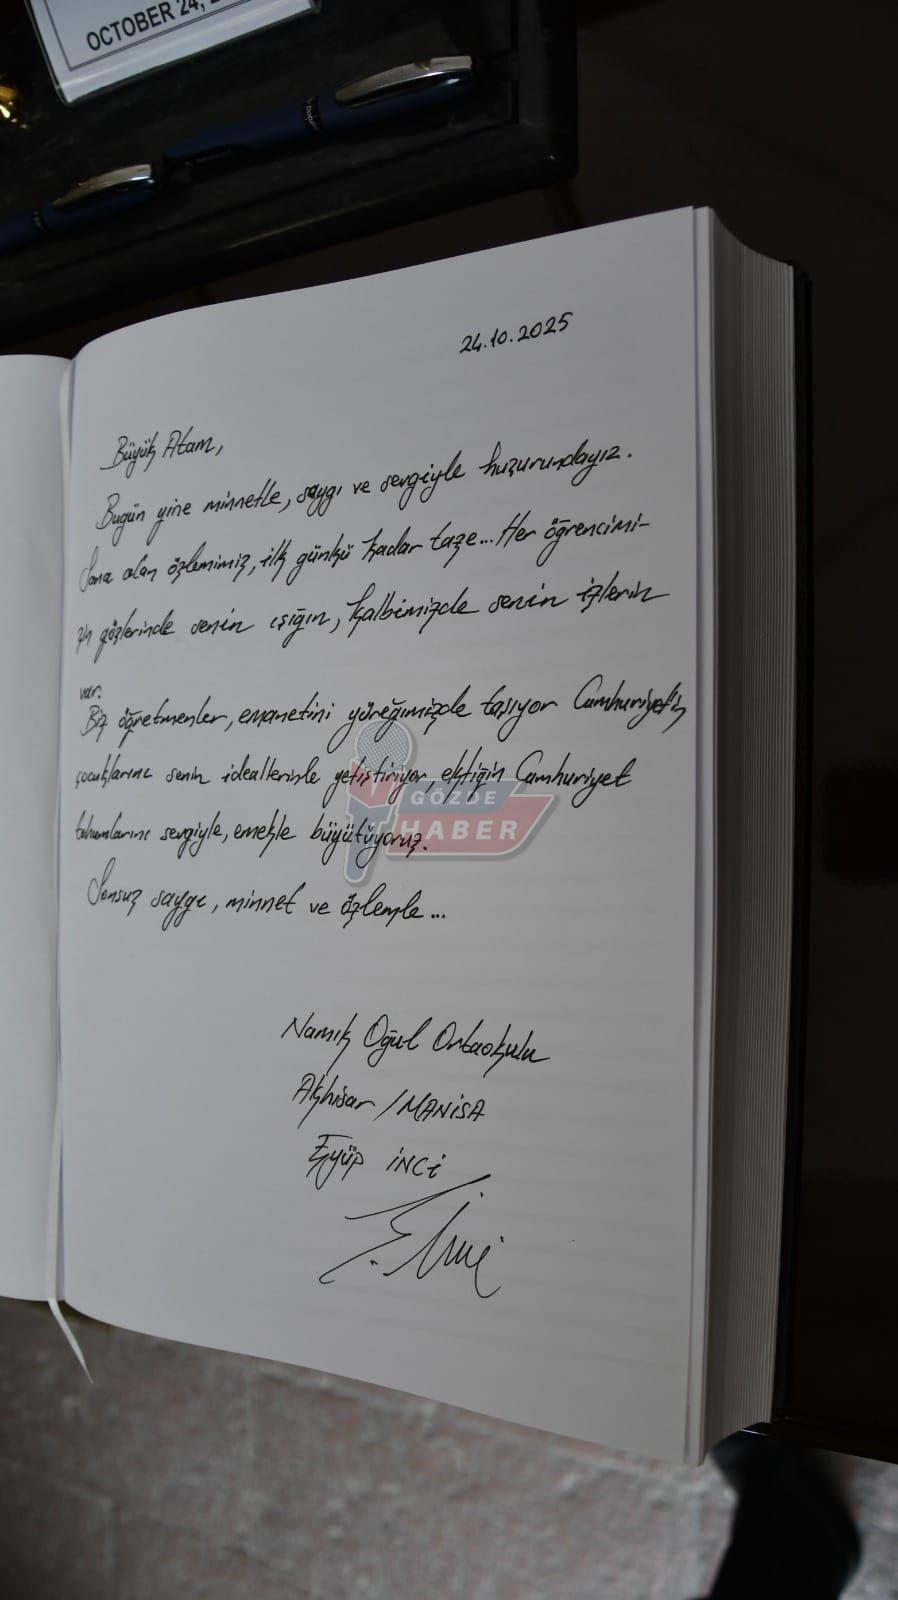 OCTOBER 24, 2
24.10.2025
Büyük Atam,
Bugün yine minnetle, saygı ve sevgiyle huzurundayız.
Sana olan özlemimiz, ilk günkü kadar taze... Her öğrencimi-
zin gözlerinde senin ışığın, kalbimizde senin izlerin
var.
Biz öğretmenler, emanetini yüreğimizde taşıyor Cumhuriyet'in
çocuklarını senin ideallerinle yetiştiriyor, ektiğin Cumhuriyet
tohumlarını sevgiyle, emekle büyütüyoruz.
Sonsuz saygı, minnet ve özlemle...
Namık Oğul Ortaokulu
Akhisar / MANİSA
Eyüp İNCİ
E. İnci
GÖZDE
HABER